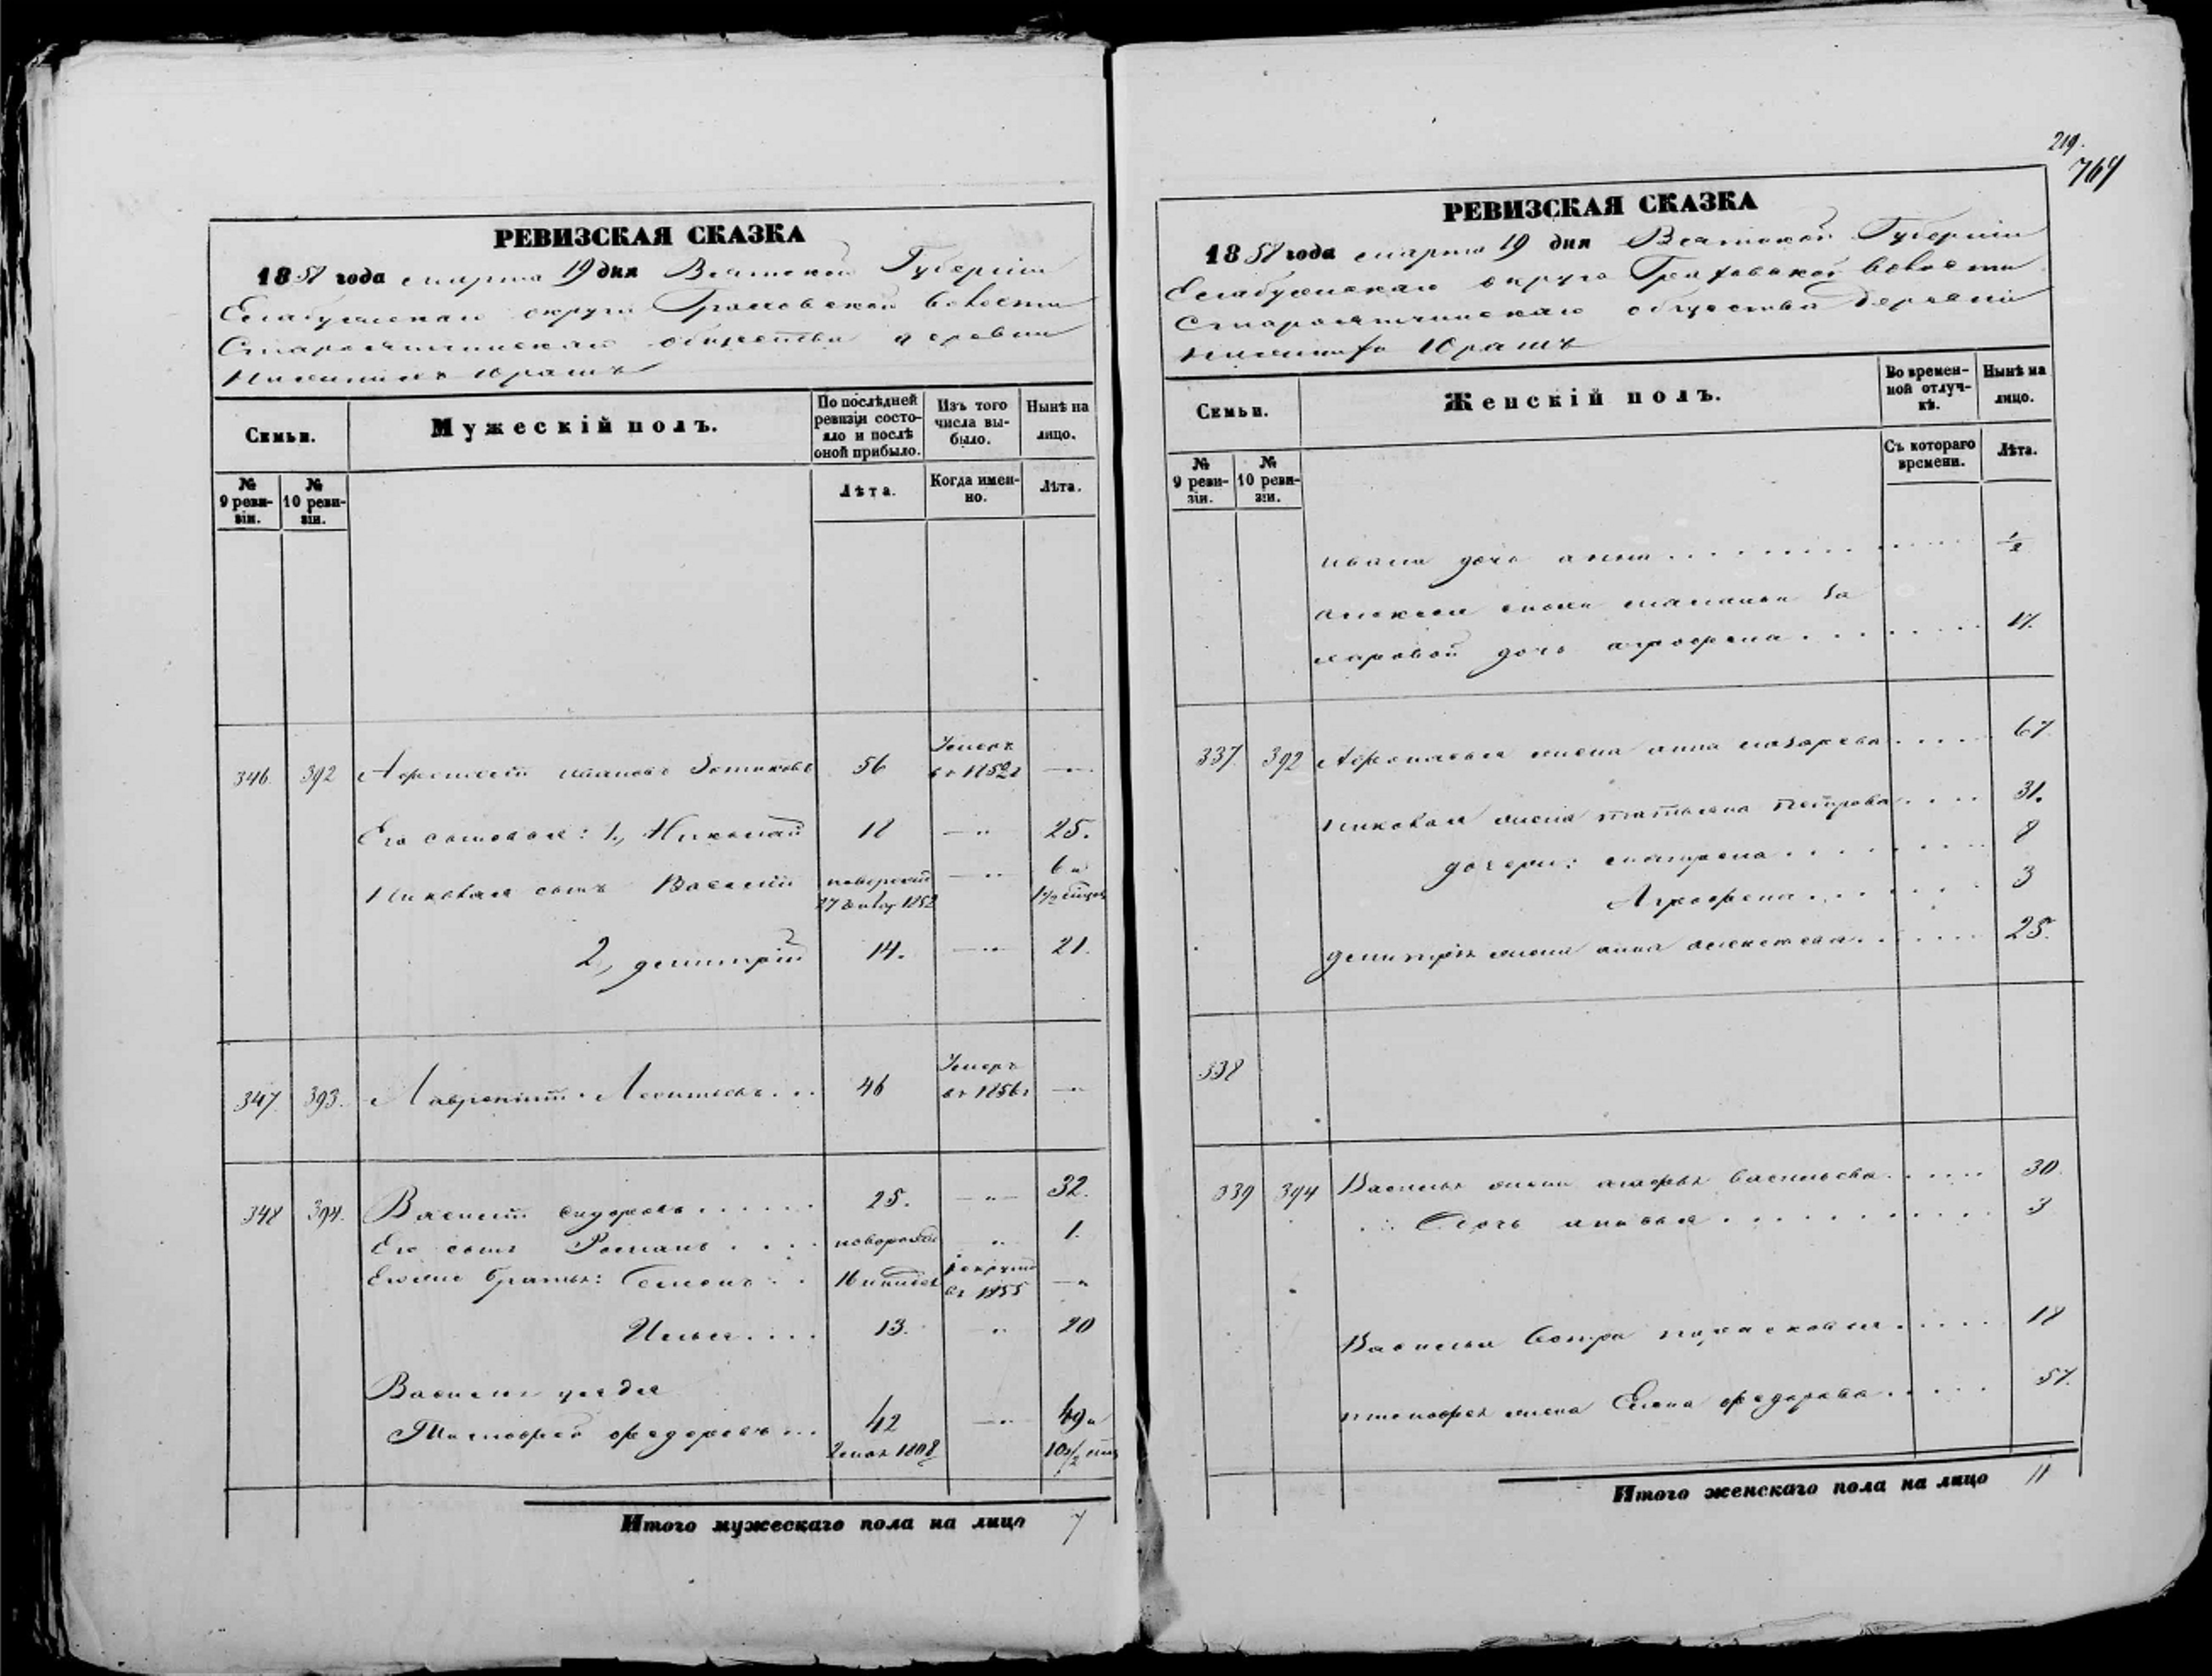 РЕВИЗСКАЯ СКАЗКА
1858 года марта 19 дня Вятской Губернiи
Елабужскаго округа Граховской волости
Староятчинскаго общества деревни
Юрашъ
Семьи.
Мужескiй полъ.
По послѣдней
ревизiи состо-
яло и послѣ
оной прибыло.
Изъ того
числа вы-
было.
Нынѣ на
лицо.
№
9 реви-
зiи.
№
10 реви-
зiи.
Лѣта.
Когда имен-
но.
Лѣта.
346. 392 Ивановъ 56 Умеръ въ 1852 г —
Его сыновья: 1, Николай 18 —"— 25.
Николая сынъ Василiй 27 1852 —"— 6 и 1 1/2
2, Дмитрiй 14. —"— 21.
347. 393. Лаврентiй Леонтьевъ... 46 Умеръ въ 1856 г —"—
348 394. Василiй Сидоровъ...... 25. —"— 32.
Его сынъ Романъ.... новорожд " 1.
Его же братья: Семенъ.. 16 въ 1855 —"
Илья.... 13. " 20
Василья дядя
Тимофей Федоровъ... 42 —"— 49 и
1808 10 1/2
Итого мужескаго пола на лицо 7
219.
767
РЕВИЗСКАЯ СКАЗКА
1858 года марта 19 дня Вятской Губернiи
Елабужскаго округа Граховской волости
Староятчинскаго общества деревни
Юрашъ
Семьи.
Женскiй полъ.
Во времен-
ной отлуч-
кѣ.
Нынѣ на
лицо.
№
9 реви-
зiи.
№
10 реви-
зiи.
Съ котораго
времени.
Лѣта.
Ивана дочь Анна 1/2
Алексея
дочь Агрофена 17.
337. 392 жена Анна Назарева 67.
Николая жена Татьяна Петрова 31.
дочери: Матрена 8
Агрофена 3
Дмитрiя жена Анна Алексеева 25.
338
339 394 Василья жена Марфа Васильева 30.
Дочь 3
Василья сестра Парасковья 18
Тимофея жена Елена Федорова 57.
Итого женскаго пола на лицо 11